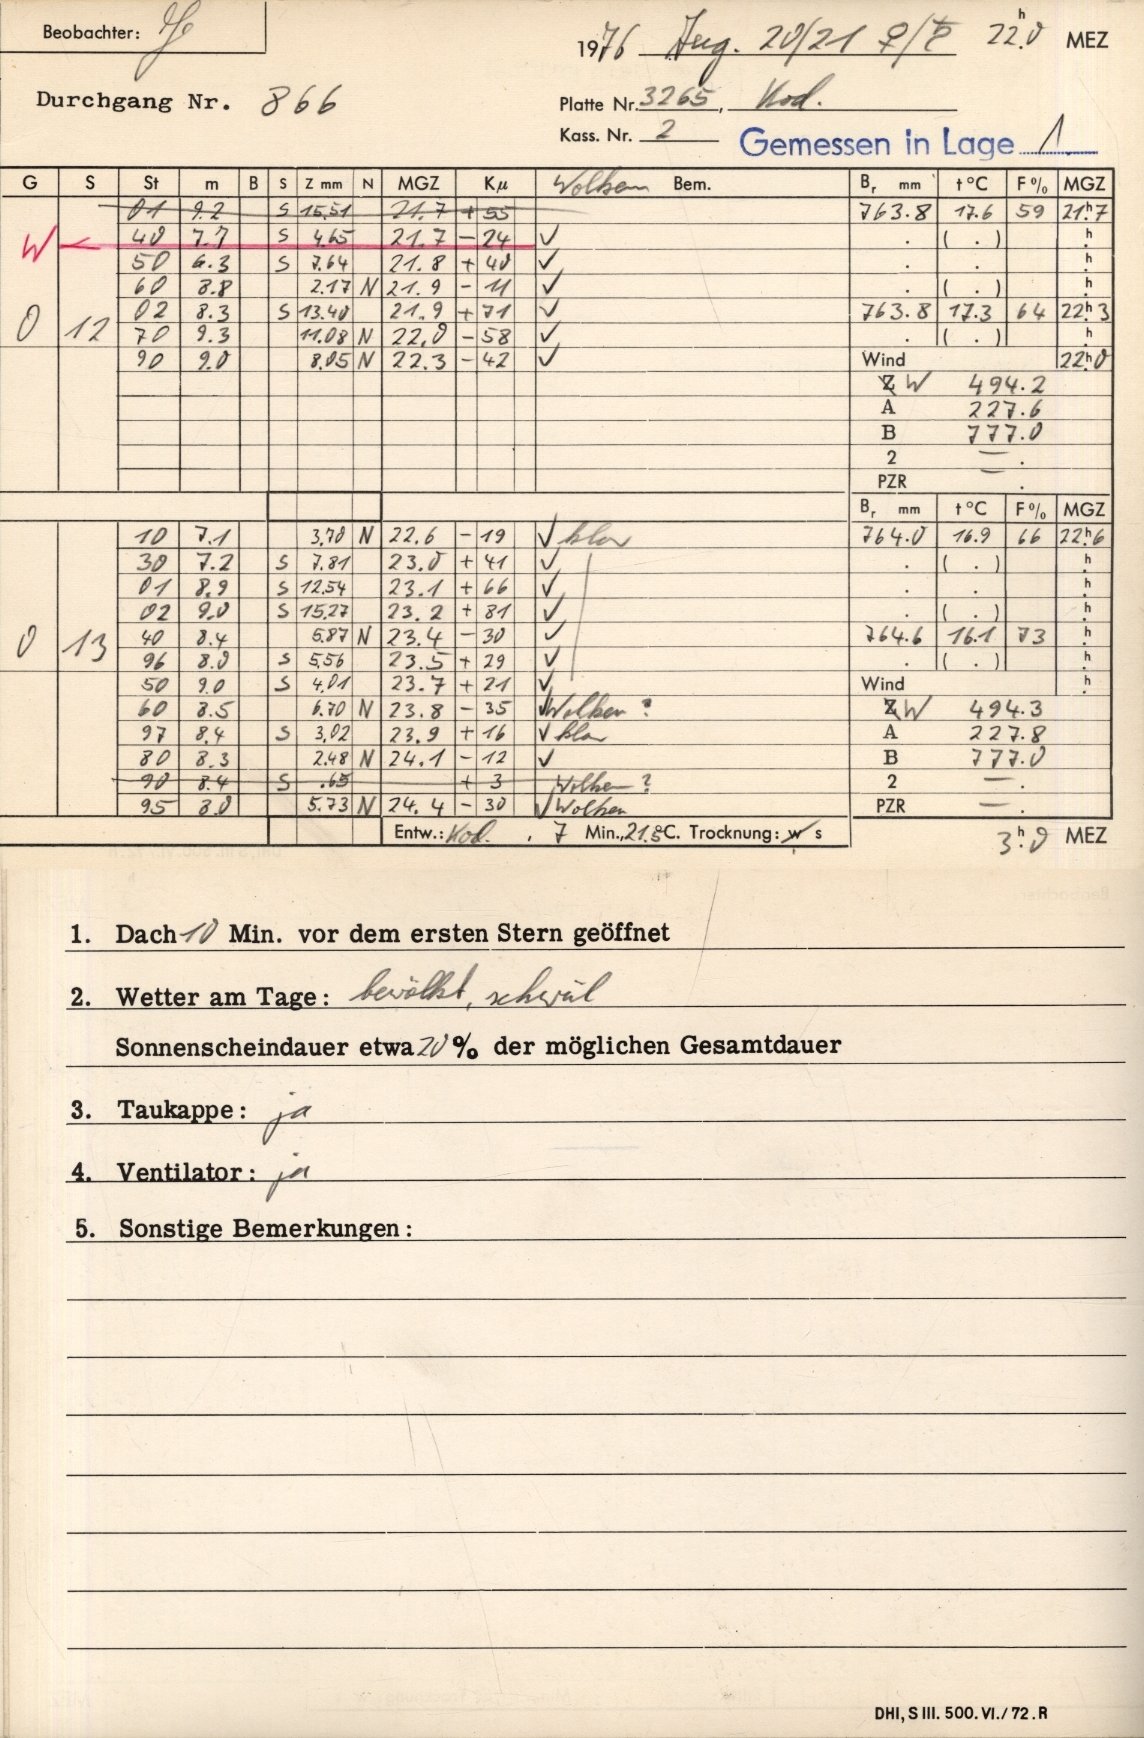 Beobachter:
1976 Aug. 20/21 ♀/♄ 22h.0 MEZ
Durchgang Nr. 866
Platte Nr. 3265, Kod.
Kass. Nr. 2
Gemessen in Lage 1
G S St m B S Z mm N MGZ Kμ Wolken Bem. Br mm t°C F% MGZ
01 9.2 S 15,51 21.7 + 55 763.8 17.6 59 21h.7
W 40 7.7 S 4,65 21.7 - 24 ✓ . ( . ) h.
50 6.3 S 7,64 21.8 + 40 ✓ . . h.
60 8.8 2.17 N 21.9 - 11 ✓ . ( . ) h.
0 12 02 8.3 S 13.40 21.9 + 71 ✓ 763.8 17.3 64 22h.3
70 9.3 11.08 N 22,0 - 58 ✓ . ( . ) h.
90 9.0 8,05 N 22.3 - 42 ✓ Wind 22h.0
Z W 494.2
A 227.6
B 777.0
2 — .
PZR — .
Br mm t°C F% MGZ
10 7.1 3,70 N 22.6 - 19 ✓ klar 764.0 16.9 66 22h.6
30 7.2 S 7,81 23.0 + 41 ✓ . ( . ) h.
01 8,9 S 12,54 23.1 + 66 ✓ . . h.
02 9.0 S 15,27 23.2 + 81 ✓ . ( . ) h.
0 13 40 8.4 5,87 N 23.4 - 30 ✓ 764.6 16.1 73 h.
96 8.0 S 5,56 23.5 + 29 ✓ . ( . ) h.
50 9.0 S 4,01 23.7 + 21 ✓ Wind h.
60 8.5 6.70 N 23.8 - 35 ✓ Wolken ? Z W 494.3
97 8,4 S 3,02 23.9 + 16 ✓ klar A 227.8
80 8.3 2.48 N 24.1 - 12 ✓ B 777.0
90 8.4 S .65 + 3 Wolken ? 2 — .
95 8.0 5.73 N 24.4 - 30 ✓ Wolken PZR — .
Entw.: Kod. , 7 Min., 21.5°C. Trocknung: w s
3h.0 MEZ
1. Dach 10 Min. vor dem ersten Stern geöffnet
2. Wetter am Tage: bewölkt, schwül
Sonnenscheindauer etwa 20 % der möglichen Gesamtdauer
3. Taukappe: ja
4. Ventilator: ja
5. Sonstige Bemerkungen:
DHI, S III. 500. VI./72. R